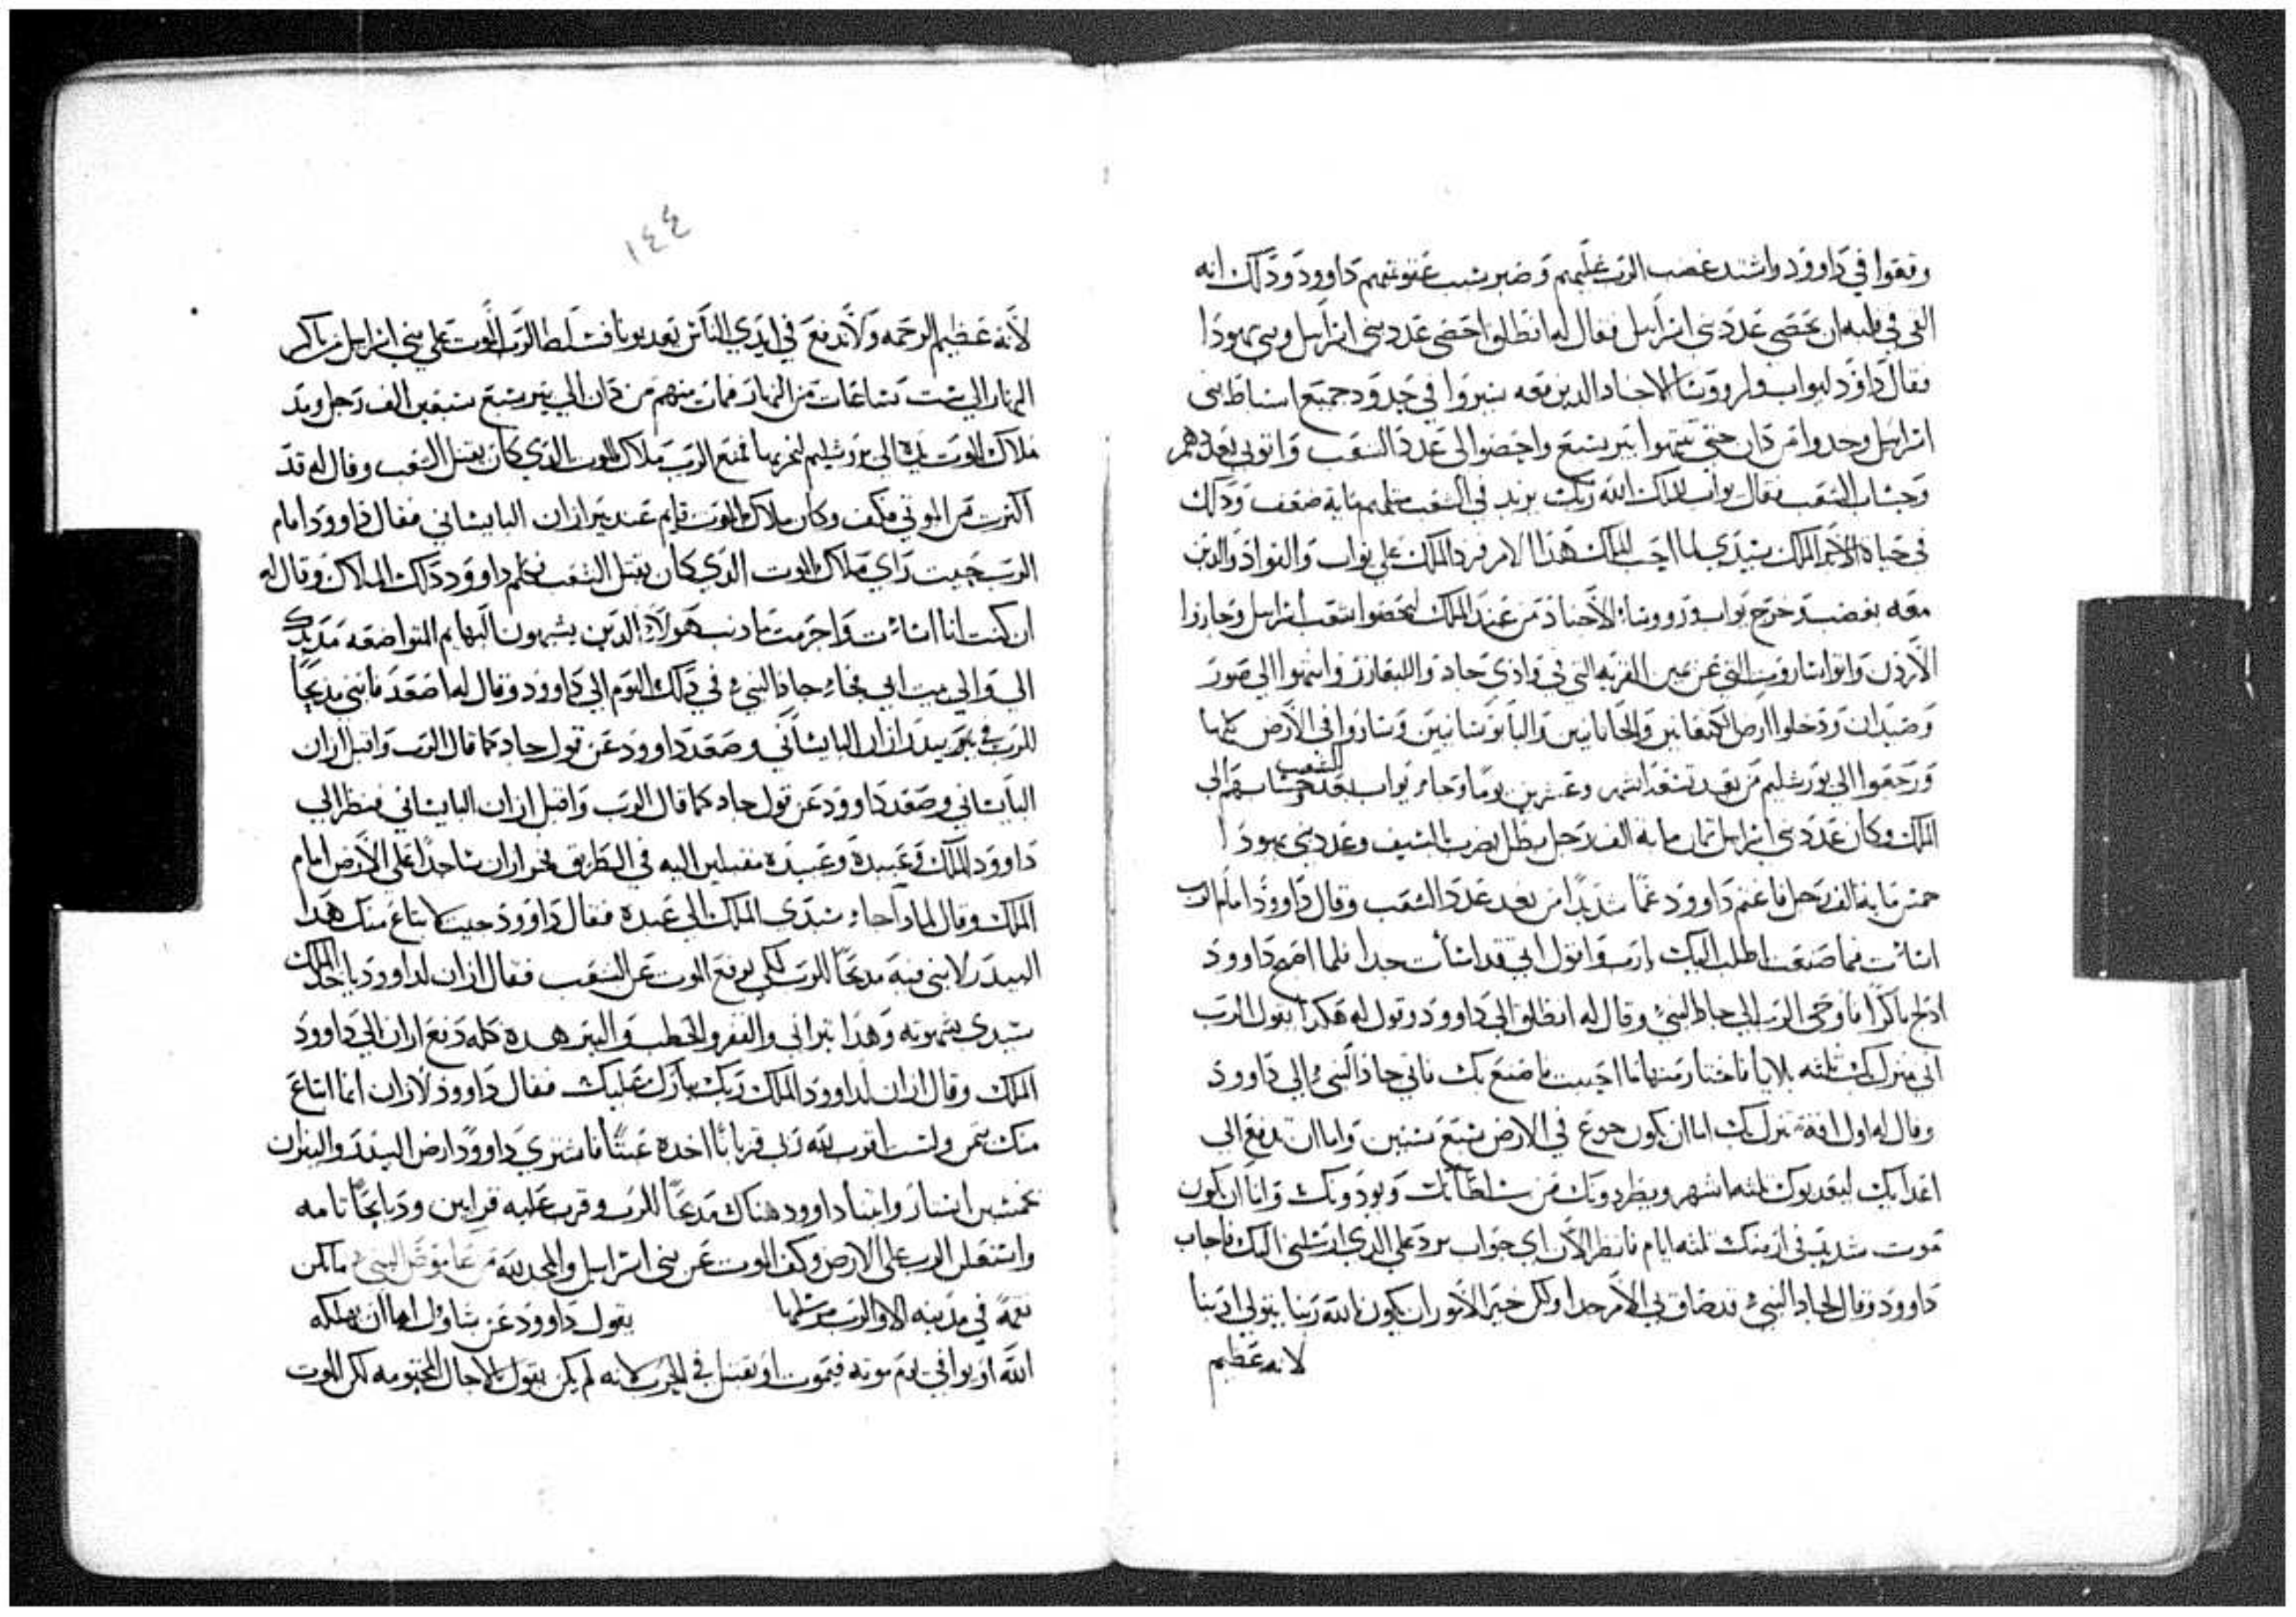 وقعوا في داوود واشتد غضب الرب عليهم وضبر شبب عقوبتهم داوود ودلك انه
القى في قلبه ان يحصى عدد بني اسرايل فقال له انطلق احصى عدد بني اسرايل وبني يهودا
فقال داوود ليواب ولرووشا الاجناد الدين معه سيروا في حدود جميع اسباط بني
اسرايل وحدوا من دان حتى تنتهوا بير سبع واحصوا الى عدد الشعب واتوني بعددهم
وحساب الشعب فقال يواب للملك الله ربك يزيد في الشعب مثلهم مايه ضعف ودلك
في حياه الملك سيدي لما احب الملك هدا الامر فرد الملك على يواب والقواد والدين
معه بغضب وخرج يواب ورووسا الاجناد من عند الملك ليحصوا شعب اسرايل وجازوا
الاردن واتوا سارويت التي عن يمين القريه التي في وادي جاد والليعازر وانتهوا الى صور
وصيدان ودخلوا ارض الكنعانين والحانانيين واليابوسانيين وساروا في الارض كلها
ورجعوا الى يورشليم من بعد تسعه اشهر وعشرين يوما وجا يواب بعدد حساب الشعب الى
الملك وكان عدد بني اسرايل ثمان مايه الف رجل بطل يضرب بالسيف وعدد بني يهودا
خمس مايه الف رجل فاغتم داوود غما شديدا من بعد عدد الشعب وقال داوود امام الرب
اسات فيما صنعت اطلب اليك يا رب واقول اني قد اسات جدا فلما اصبح داوود
ادلج باكرا فاوحى الرب الى جاد النبي وقال له انطلق الى داوود وقول له هكدا يقول الرب
اني منزل بك ثلثه بلايا فاختار منها ما احببت ما اصنع بك فاتى جاد النبي الى داوود
وقال له اول افه تنزل بك اما ان يكون جوع في الارض سبع سنين واما ان تدفع الى
اعدايك ليعدبوك ثلثه اشهر ويطردونك من سلطانك ويودونك واما ان يكون
موت شديد في ازمنك ثلثه ايام فانظر الان اي جواب برد على الدي ارسلني اليك فاجاب
داوود وقال لجاد النبي قد ضاق بي الامر جدا ولكن خير الامور ان يكون الله ربنا يتولى ادبنا
لانه عظيم
١٤٤
لانه عظيم الرحمه ولا ندفع في ايدي الناس يعدبونا فسلط الرب الموت على بني اسرايل من باكر
النهار الى ست ساعات من النهار فمات منهم من دان الى بير سبع سبعين الف رجل ومد
ملاك الموت يده الى يورشليم ليخربها فمنع الرب ملاك الموت الدي كان يقتل الشعب وقال له قد
اكثرت من الموتى فكف وكان ملاك الموت قايم عند بير اران اليابساني فقال داوود امام
الرب حيت راى ملاك الموت الدي كان يقتل الشعب فكلم داوود دلك الملاك وقال له
ان كنت انا اسات واجرمت ما دنب هولاء الدين يشبهون البهايم المتواضعه مد يدك
الي والى بيت ابي فجاء جاد النبي في دلك اليوم الى داوود وقال له اصعد فابني مدبحا
للرب في بيدر اران اليابساني وصعد داوود عن قول جاد كما قال الرب واقبل اران
اليابساني وصعد داوود عن قول جاد كما قال الرب واقبل اران اليابساني فنظر الى
داوود الملك وعبيده وعبيده مقبلين اليه في الطريق فخر اران ساجدا على الارض امام
الملك وقال لمادا جاء سيدي الملك الى عبده فقال داوود جيت لابتاع منك هدا
البيدر لابني فيه مدبحا للرب لكي يرفع الموت عن الشعب فقال اران لداوود ياخد الملك
سيدي بثمونه وهدا تيراني والبقر والحطب والنير هده كله دفع اران الى داوود
الملك وقال اران لداوود الملك ربك يبارك عليك فقال داوود لاران انما ابتاع
منك بثمن ولست اقرب لله ربي قربانا اخده عبثا فاشترى داوود ارض البيدر والثيران
بخمسين استار وابتنا داوود هناك مدبحا للرب وقرب عليه قرابين ودبايحا تامه
واستعلن الرب على الارض وكف الموت عن بني اسرايل والمجد لله من عاموص النبي ما تكن
نقمة في مدينه الا والرب مرسلها يقول داوود عن شاول اما ان يهلكه
الله او يوافي يوم موته فيموت او يقتل في الحرب لانه لم يكن يقول بالاجال المحتومه لكن الموت